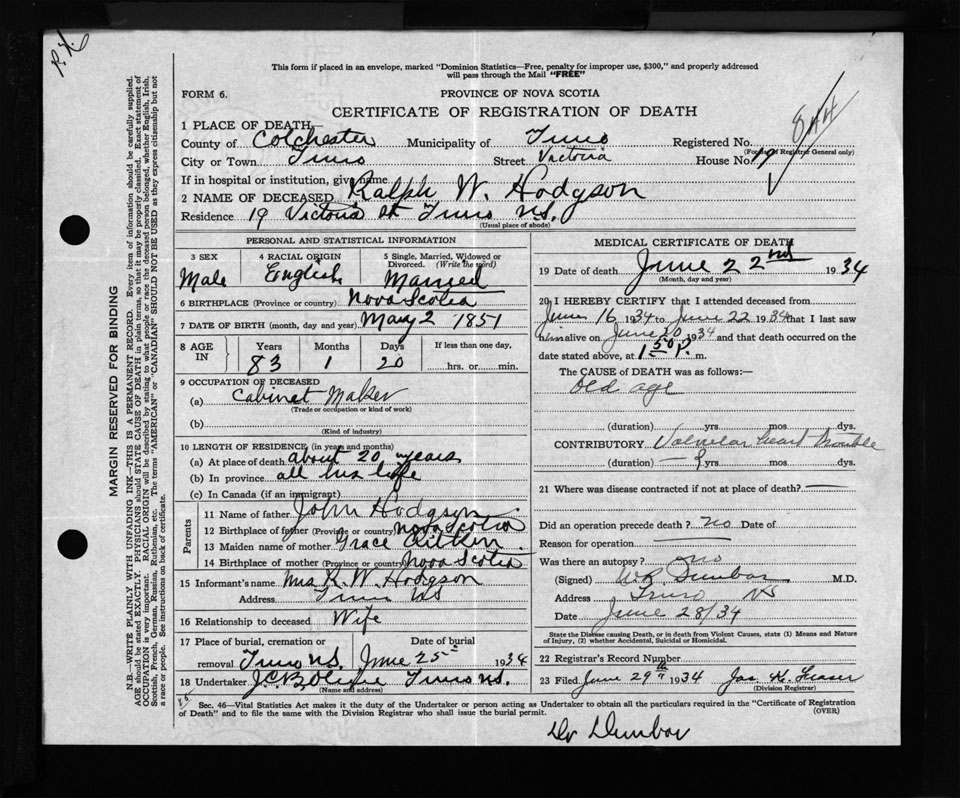 P. X.
This form if placed in an envelope, marked "Dominion Statistics—Free, penalty for improper use, $300," and properly addressed
will pass through the Mail "FREE"
FORM 6.
PROVINCE OF NOVA SCOTIA
CERTIFICATE OF REGISTRATION OF DEATH
844
1 PLACE OF DEATH—
County of Colchester Municipality of Truro Registered No.
(For use of Registrar General only)
City or Town Truro Street Victoria House No. 19
If in hospital or institution, give name
2 NAME OF DECEASED Ralph W. Hodgson
Residence 19 Victoria St Truro N.S.
(Usual place of abode)
PERSONAL AND STATISTICAL INFORMATION
3 SEX 4 RACIAL ORIGIN 5 Single, Married, Widowed or Divorced. (Write the word)
Male English Married
6 BIRTHPLACE (Province or country) Nova Scotia
7 DATE OF BIRTH (month, day and year) May 2 1851
8 AGE IN Years Months Days If less than one day,
83 1 20 hrs. or min.
9 OCCUPATION OF DECEASED
(a) Cabinet Maker
(Trade or occupation or kind of work)
(b)
(Kind of industry)
10 LENGTH OF RESIDENCE (in years and months)
(a) At place of death about 20 years
(b) In province all his life
(c) In Canada (if an immigrant)
Parents
11 Name of father John Hodgson
12 Birthplace of father (Province or country) Nova Scotia
13 Maiden name of mother Grace Aitken
14 Birthplace of mother (Province or country) Nova Scotia
15 Informant's name Mrs. R. W. Hodgson
Address Truro NS
16 Relationship to deceased Wife
17 Place of burial, cremation or removal Truro N.S. Date of burial June 25 1934
18 Undertaker Truro N.S.
(Name and address)
MEDICAL CERTIFICATE OF DEATH
19 Date of death June 22nd 1934
(Month, day and year)
20 I HEREBY CERTIFY that I attended deceased from
June 16 1934 to June 22 1934 that I last saw
him alive on June 20 1934 and that death occurred on the
date stated above, at 1.50 P. m.
The CAUSE of DEATH was as follows:—
Old age
(duration) yrs. mos. dys.
CONTRIBUTORY Valvular heart trouble
(duration) yrs. mos. dys.
21 Where was disease contracted if not at place of death?
Did an operation precede death? no Date of
Reason for operation
Was there an autopsy? no
(Signed) W.R. Dunbar M.D.
Address Truro NS
Date June 28/34
State the Disease causing Death, or in death from Violent Causes, state (1) Means and Nature
of Injury, (2) whether Accidental, Suicidal or Homicidal.
22 Registrar's Record Number
23 Filed June 29th 1934 Jas. K. Fraser
(Division Registrar)
Sec. 46—Vital Statistics Act makes it the duty of the Undertaker or person acting as Undertaker to obtain all the particulars required in the "Certificate of Registration
of Death" and to file the same with the Division Registrar who shall issue the burial permit.
(OVER)
Dr Dunbar
MARGIN RESERVED FOR BINDING
N.B.—WRITE PLAINLY WITH UNFADING INK—THIS IS A PERMANENT RECORD. Every item of information should be carefully supplied.
AGE should be stated EXACTLY. PHYSICIANS should STATE CAUSE OF DEATH in plain terms, so that it may be properly classified. Exact statement of
OCCUPATION is very important. RACIAL ORIGIN will be described by stating to what people or race the deceased person belonged, whether English, Irish,
Scottish, French, German, Russian, Ruthenian, etc. The terms "AMERICAN" or "CANADIAN" SHOULD NOT BE USED as they express citizenship but not
a race or people. See instructions on back of certificate.